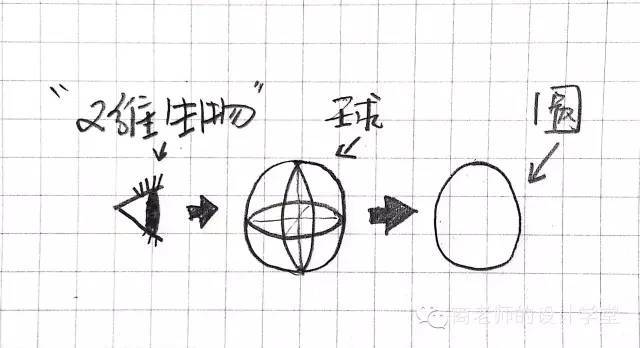 “2维生物”
球
圆
高老师的设计学堂